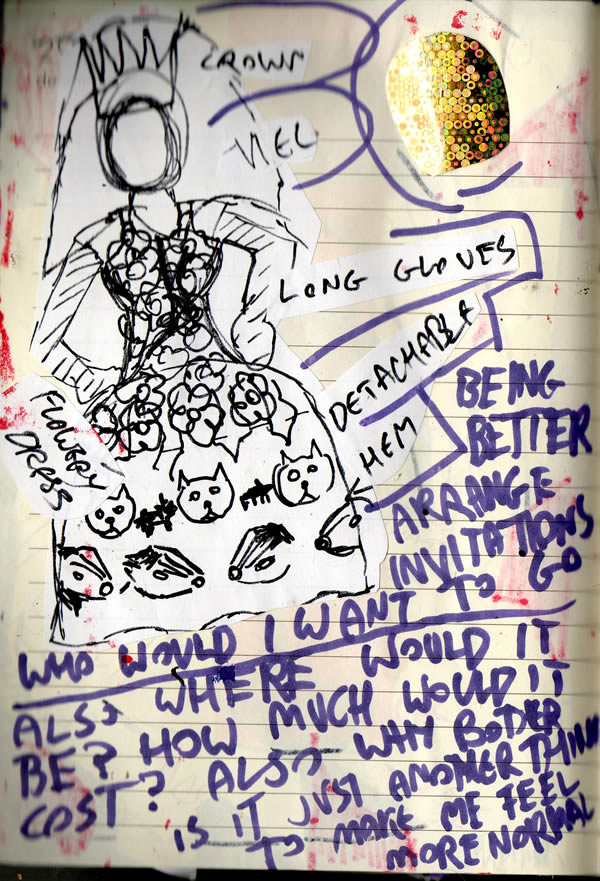 CROWN
VIEL
LONG GLOVES
DETACHABLE
HEM
FLOWERY
DRESS
BEING
BETTER
ARRANGE
INVITATIONS
TO GO
WHO WOULD I WANT
ALSO WHERE WOULD IT
BE? HOW MUCH WOULD IT
COST? ALSO WHY BODER
IS IT JUST ANOTHER THING
TO MAKE ME FEEL
MORE NORMAL